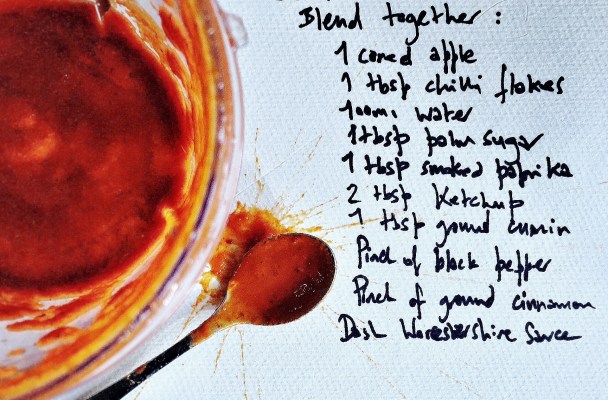 Blend together :
1 cored apple
1 tbsp chilli flakes
100ml water
1 tbsp palm sugar
1 tbsp smoked paprika
2 tbsp Ketchup
1 tbsp ground cumin
Pinch of black pepper
Pinch of ground cinnamon
Dash Worcestershire Sauce